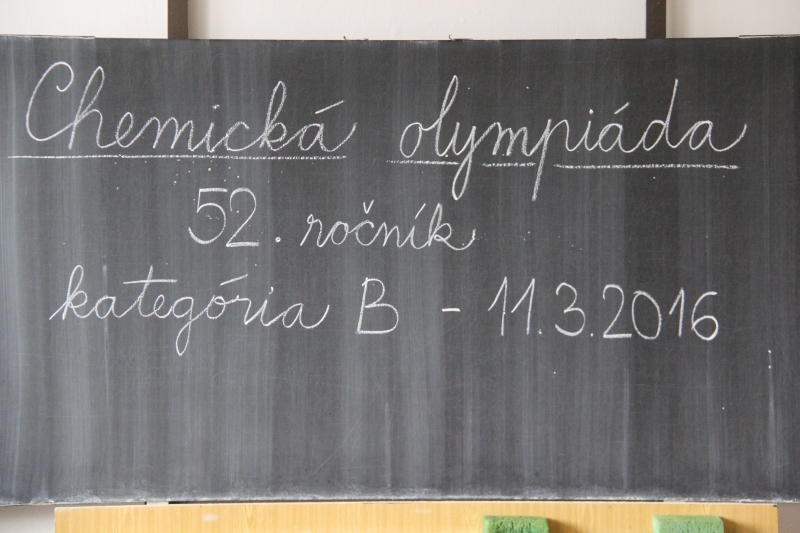 Chemická olympiáda
52. ročník
kategória B - 11.3.2016